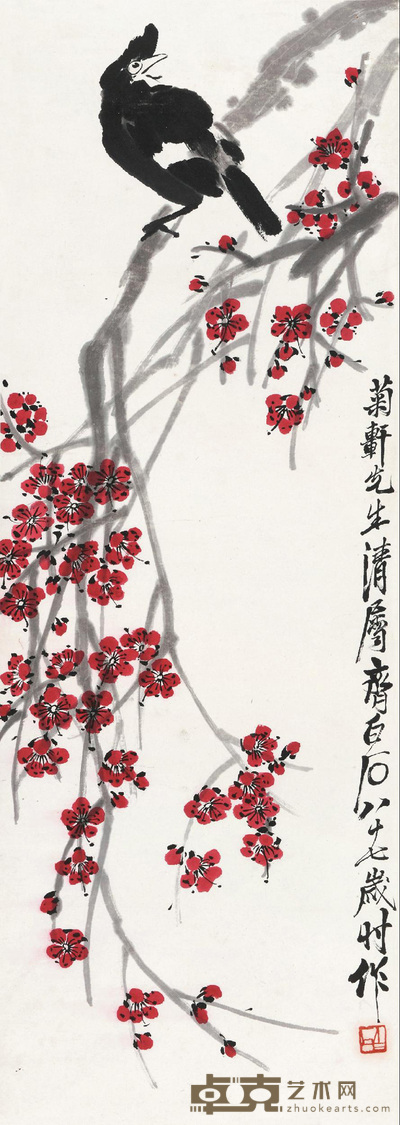 菊軒先生清屬齊白石八十七歲時作
卓克艺术网
zhuokearts.com